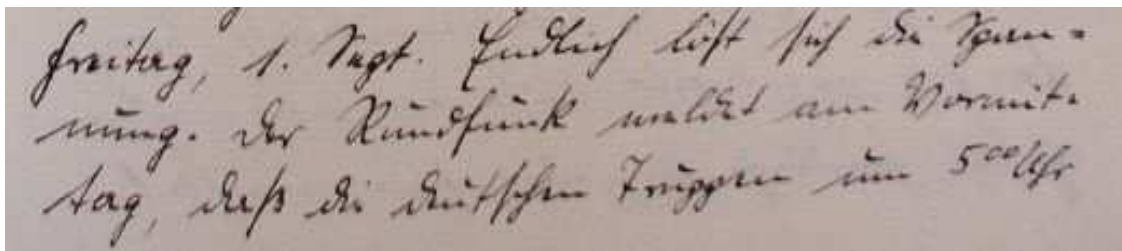 Freitag, 1. Sept. Endlich löst sich die Span-
nung. Der Rundfunk meldet am Vormit-
tag, daß die deutschen Truppen um 5⁰⁰ Uhr